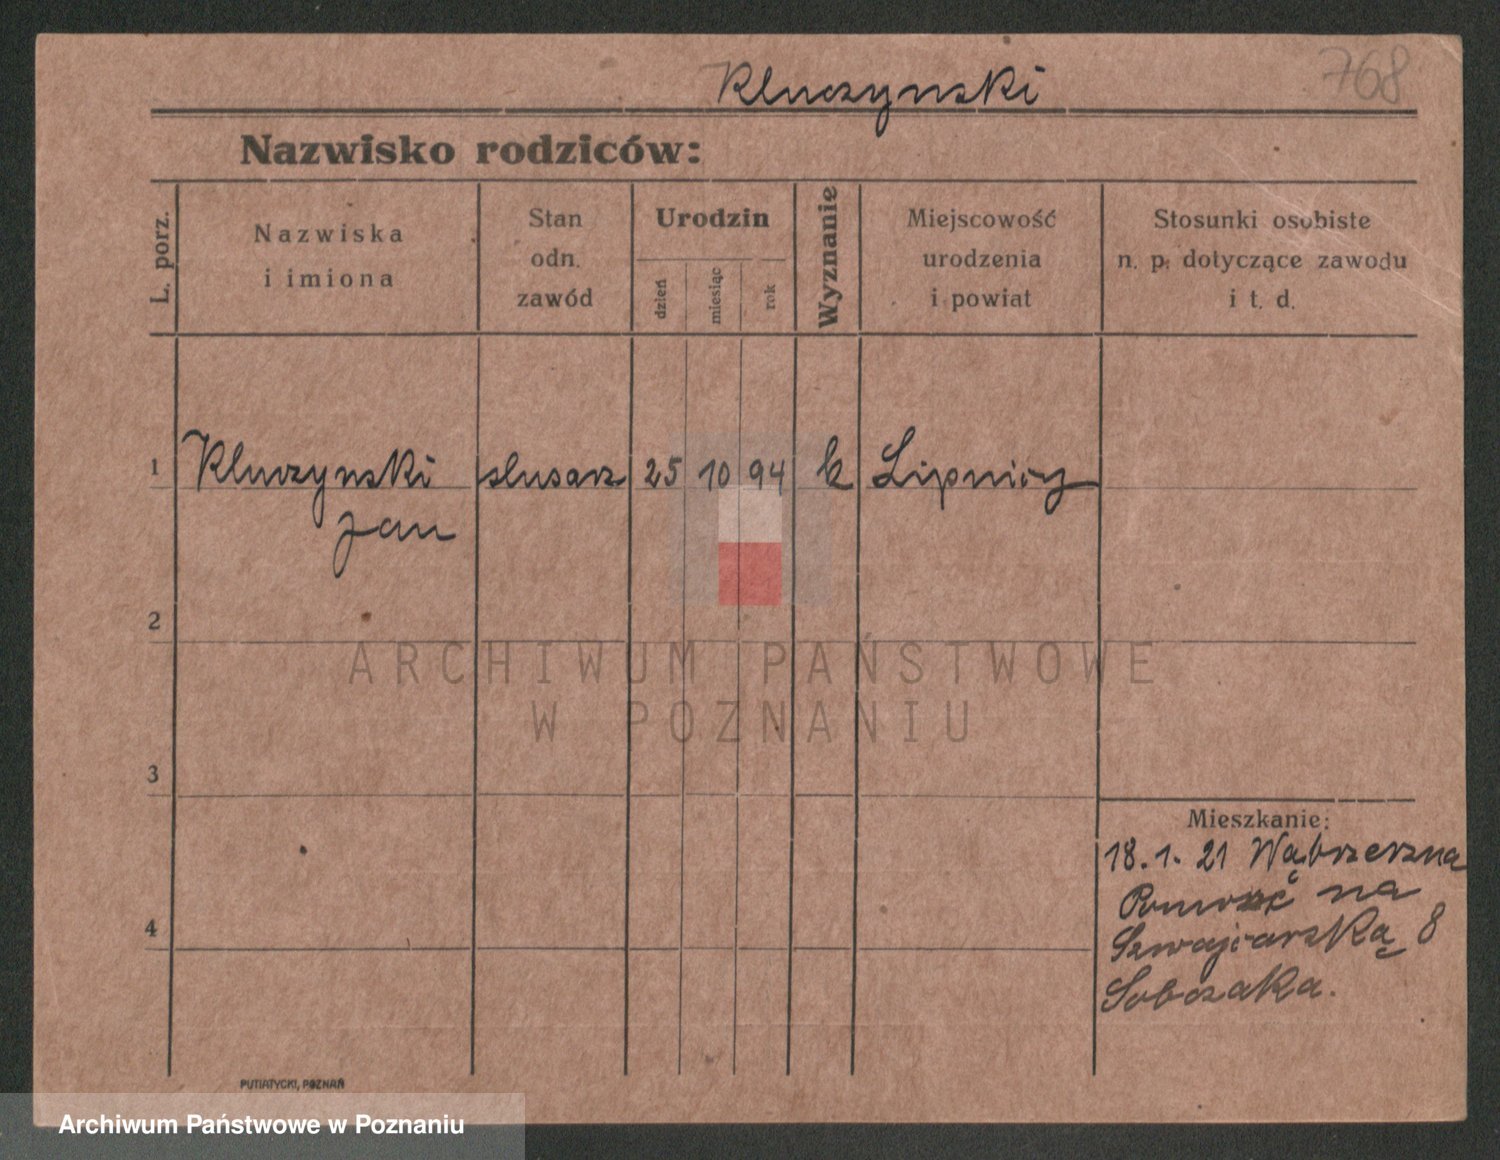 Kluczynski 768
Nazwisko rodziców:
L. porz.
Nazwiska
i imiona
Stan
odn.
zawód
Urodzin
dzień
miesiąc
rok
Wyznanie
Miejscowość
urodzenia
i powiat
Stosunki osobiste
n. p. dotyczące zawodu
i t. d.
1 Kluczynski slusarz 25 10 94 k Lipnicy
Jan
2
ARCHIWUM PAŃSTWOWE
W POZNANIU
3
Mieszkanie:
18.1.21 Wąbrzezna
na
4
Szwajcarską 8
Sobczaka.
PUTIATYCKI, POZNAŃ
Archiwum Państwowe w Poznaniu